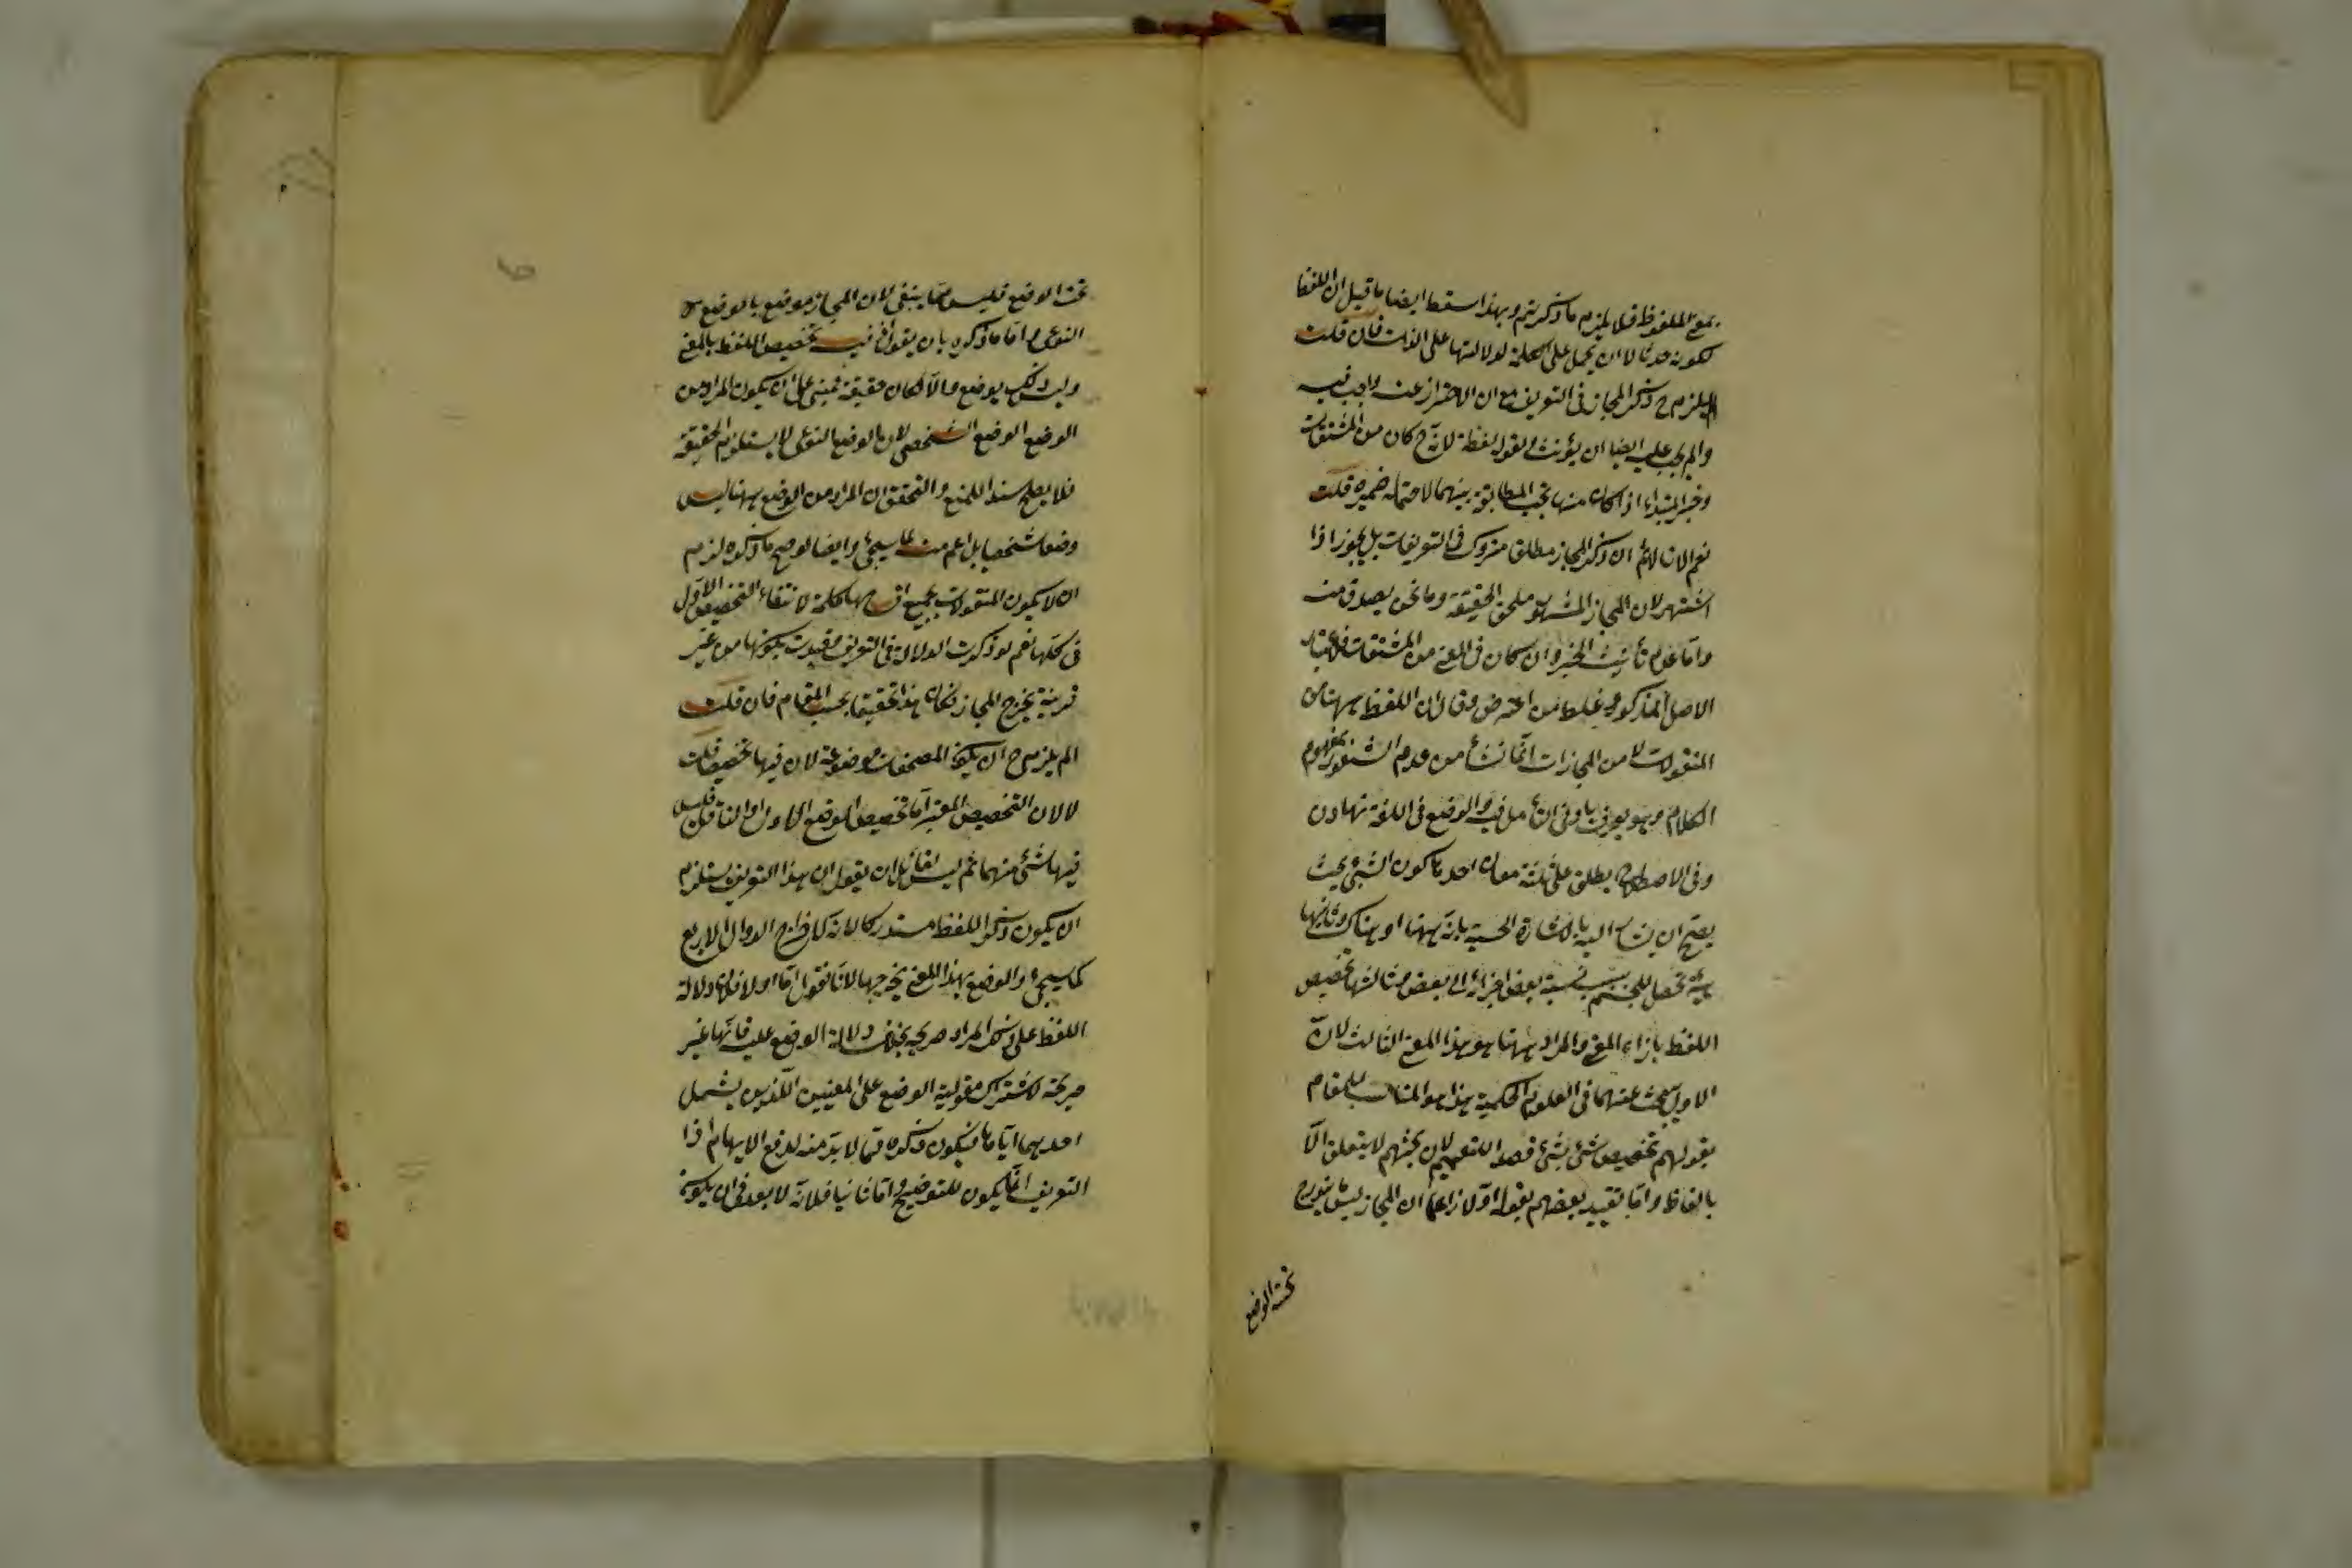 بمعنى الملفوظ فلا يلزم ما ذكرتم وبهذا سقط ايضا ما قيل ان اللفظ
لكونه حدثا لا ان يحمل على الكلمة لدلالتها على الذات فان قلت
الم يلزم ح ذكر المجاز فى التعريف مع ان الاحتراز عنه واجب فيه
والم يجب عليه ايضا ان يؤنث لقوله لفظة لانه ح كان من المشتقات
وخبر المبتداء اذا كان منها تجب المطابقة بينهما لاحتماله ضميره قلت
نعم الا انا لانم ان ذكر المجاز مطلقا متروك فى التعريفات بل يجوز اذا
اشتهر لان المجاز المشهور ملحق بالحقيقة وما نحن بصدده منه
واما عدم تأنيث الخبر وان كان فى المعنى من المشتقات فلاعتبار
الاصل المذكور وغلط من اعترض وقال ان اللفظ ههنا من
المنقولات لا من المجازات انما نشأ من عدم الشعور بمفهوم
الكلام وهو يعرف بادنى تأمل فيه والوضع فى اللغة نهادن
وفى الاصطلاح يطلق على ثلثة معان احدها كون الشئ بحيث
يصح ان يشار اليه بالاشارة الحسية بانه ههنا او هناك وثانيها
هيئة تحصل للجسم بسبب نسبة بعض اجزائه الى بعض وثالثها تخصيص
اللفظ بازاء المعنى والمراد ههنا هو هذا المعنى الثالث لان
الاولين يبحث عنهما فى العلوم الحكمية هذا هو المناسب للمقام
بقولهم تخصيص شئ بشئ قصد التعميم لان بحثهم لا يتعلق الا
بالفاظ واما تقييد بعضهم بقوله اولا زاعما ان المجاز ليس بمندرج
تحت الوضع
تحت الوضع فليس مما ينبغى لان المجاز موضوع بالوضع
النوعى واما ما ذكره بان يقول فيه تخصيص اللفظ بالمعنى
وليس ذلك بوضع والا لكان حقيقة فمبنى على ان يكون المراد من
الوضع الوضع الشخصى لان الوضع النوعى لا يستلزم الحقيقة
فلا يصلح سندا للمنع والتحقق ان المراد من الوضع ههنا ليس
وضعا شخصيا بل اعم منه كما سيجئ وايضا لو صح ما ذكره لزم
ان لا يكون المنقولات بجميع اقسامها كلمة لانتفاء التخصيص الاول
فى كلها نعم لو ذكرت الدلالة فى التعريف وقيدت بكونها من غير
قرينة يخرج المجاز فكان هذا تحقيقا بحسب المقام فان قلت
الم يلزم ح ان يكون المصحفات موضوعة لان فيها تخصيصا قلت
لا لان التخصيص المعتبر اما تخصيص الوضع الاول او الناقل وليس
فيها شئ منهما ثم ليس لقائل ان يقول ان هذا التعريف يستلزم
ان يكون ذكر اللفظ مستدركا لانه كان لاخراج الدوال الاربع
كما سيجئ والوضع بهذا المعنى يخرجها لانا نقول اما اولا فلان دلالة
اللفظ على ذلك المراد صريحة بخلاف دلالة الوضع عليه فانها غير
صريحة لاشتراك مقولية الوضع على المعنيين اللذين يشمل
احديهما اياها فيكون ذكره مما لا بد منه لدفع الابهام اذا
التعريف انما يكون للتوضيح واما ثانيا فلانه لا بعد فى ان يكون